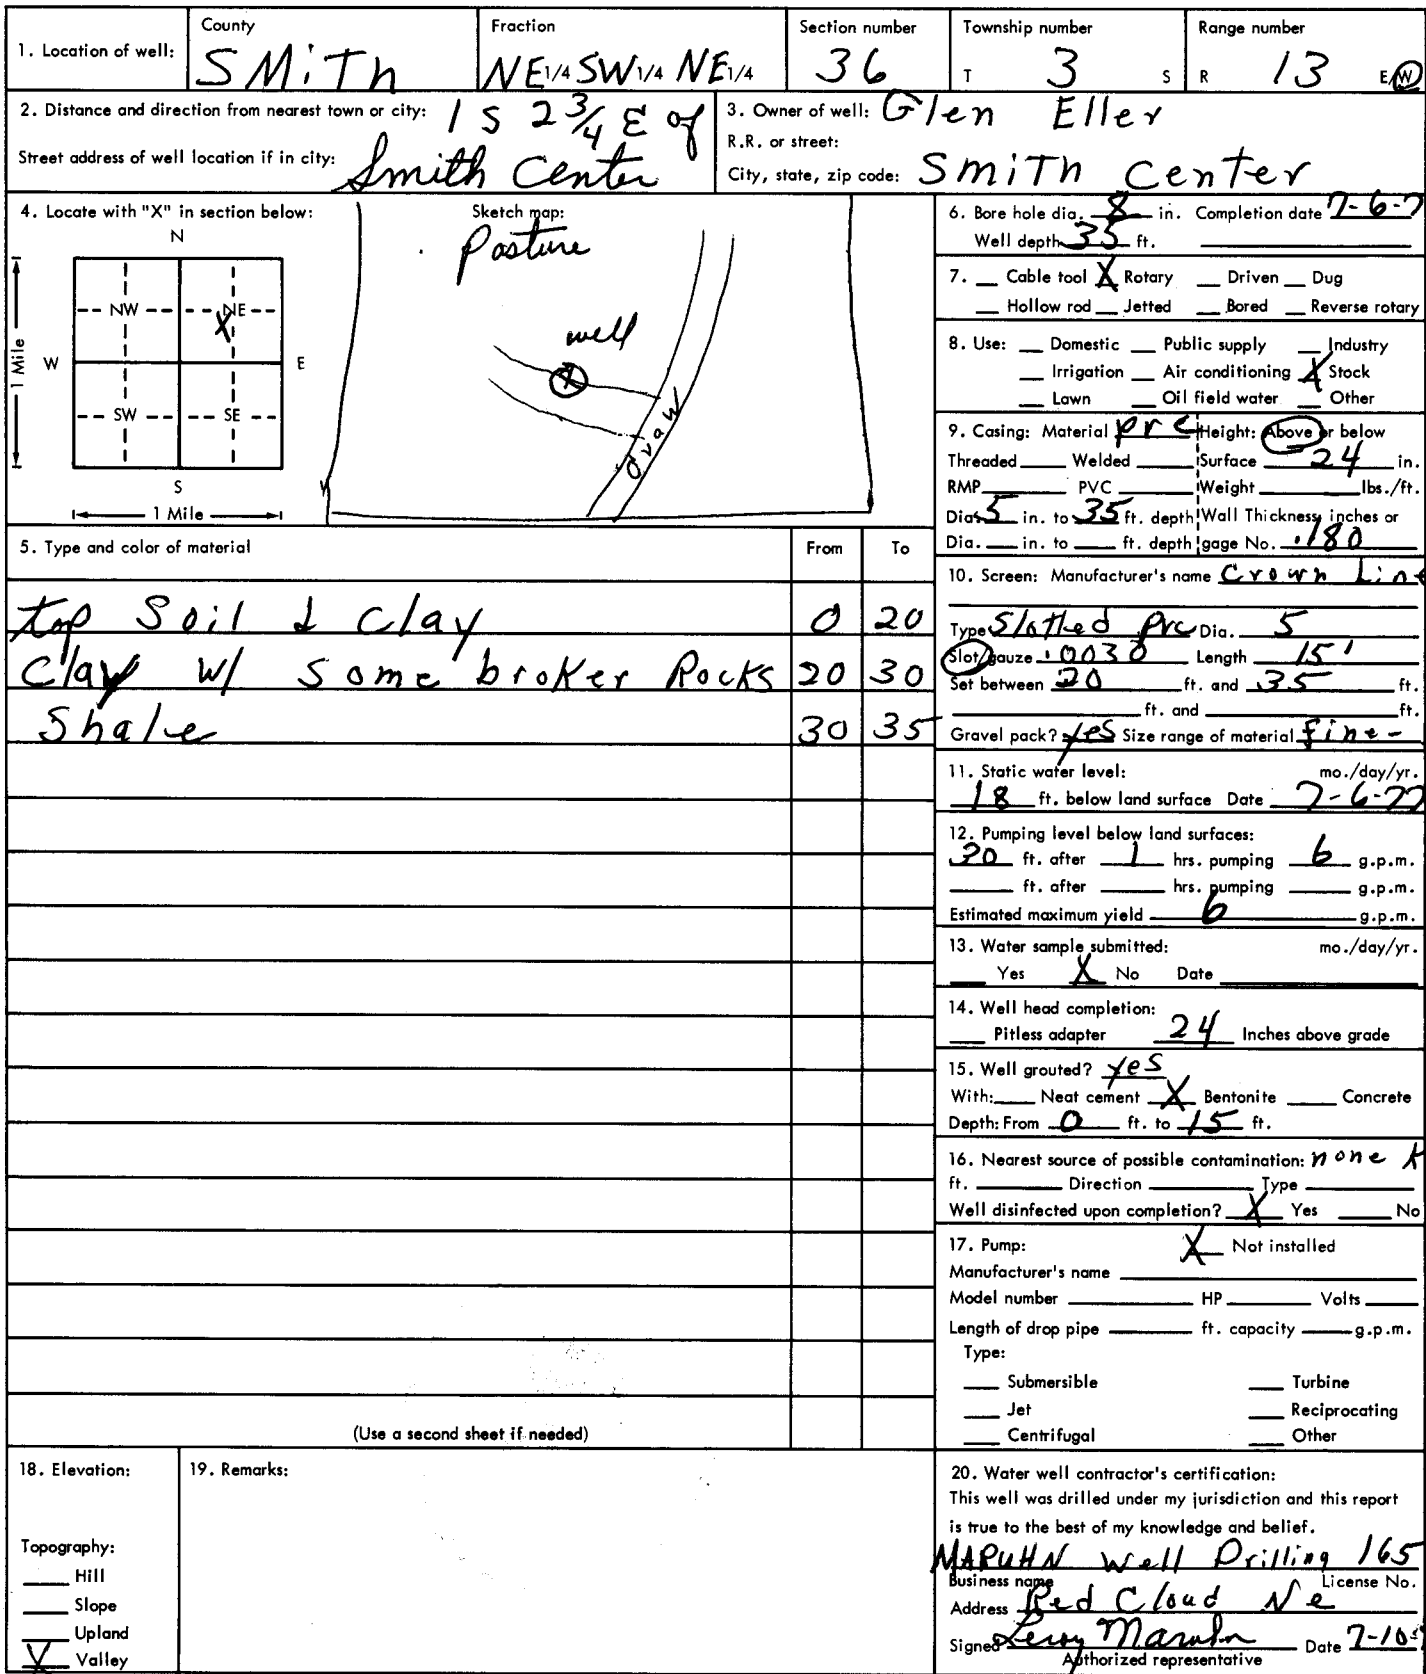 1. Location of well: County Fraction Section number Township number Range number
SMiTh NE 1/4 SW 1/4 NE 1/4 36 T 3 S R 13 E/W
2. Distance and direction from nearest town or city: 1 S 2 3/4 E of
Street address of well location if in city: Smith Center
3. Owner of well: Glen Eller
R.R. or street:
City, state, zip code: SMiTh Center
4. Locate with "X" in section below:
N
NW NE
X
W E
SW SE
S
1 Mile
1 Mile
Sketch map:
Pasture
well
X
Draw
5. Type and color of material From To
top Soil & Clay 0 20
Clay W/ Some broker Rocks 20 30
Shale 30 35
(Use a second sheet if needed)
6. Bore hole dia. 8 in. Completion date 7-6-7
Well depth 35 ft.
7. Cable tool X Rotary Driven Dug
Hollow rod Jetted Bored Reverse rotary
8. Use: Domestic Public supply Industry
Irrigation Air conditioning X Stock
Lawn Oil field water Other
9. Casing: Material pvc Height: Above or below
Threaded Welded Surface 24 in.
RMP PVC Weight lbs./ft.
Dia. 5 in. to 35 ft. depth Wall Thickness inches or
Dia. in. to ft. depth gage No. .180
10. Screen: Manufacturer's name Crown Line
Type Slotted pvc Dia. 5
Slot/gauze .0030 Length 15'
Set between 20 ft. and 35 ft.
ft. and ft.
Gravel pack? yes Size range of material fine-
11. Static water level: mo./day/yr.
18 ft. below land surface Date 7-6-77
12. Pumping level below land surfaces:
30 ft. after 1 hrs. pumping 6 g.p.m.
ft. after hrs. pumping g.p.m.
Estimated maximum yield 6 g.p.m.
13. Water sample submitted: mo./day/yr.
Yes X No Date
14. Well head completion:
Pitless adapter 24 Inches above grade
15. Well grouted? yes
With: Neat cement X Bentonite Concrete
Depth: From 0 ft. to 15 ft.
16. Nearest source of possible contamination: none K
ft. Direction Type
Well disinfected upon completion? X Yes No
17. Pump: X Not installed
Manufacturer's name
Model number HP Volts
Length of drop pipe ft. capacity g.p.m.
Type:
Submersible Turbine
Jet Reciprocating
Centrifugal Other
18. Elevation:
Topography:
Hill
Slope
Upland
X Valley
19. Remarks:
20. Water well contractor's certification:
This well was drilled under my jurisdiction and this report
is true to the best of my knowledge and belief.
MARUHN Well Drilling 165
Business name License No.
Address Red Cloud Ne
Signed Leroy Maruhn Date 7-10-
Authorized representative